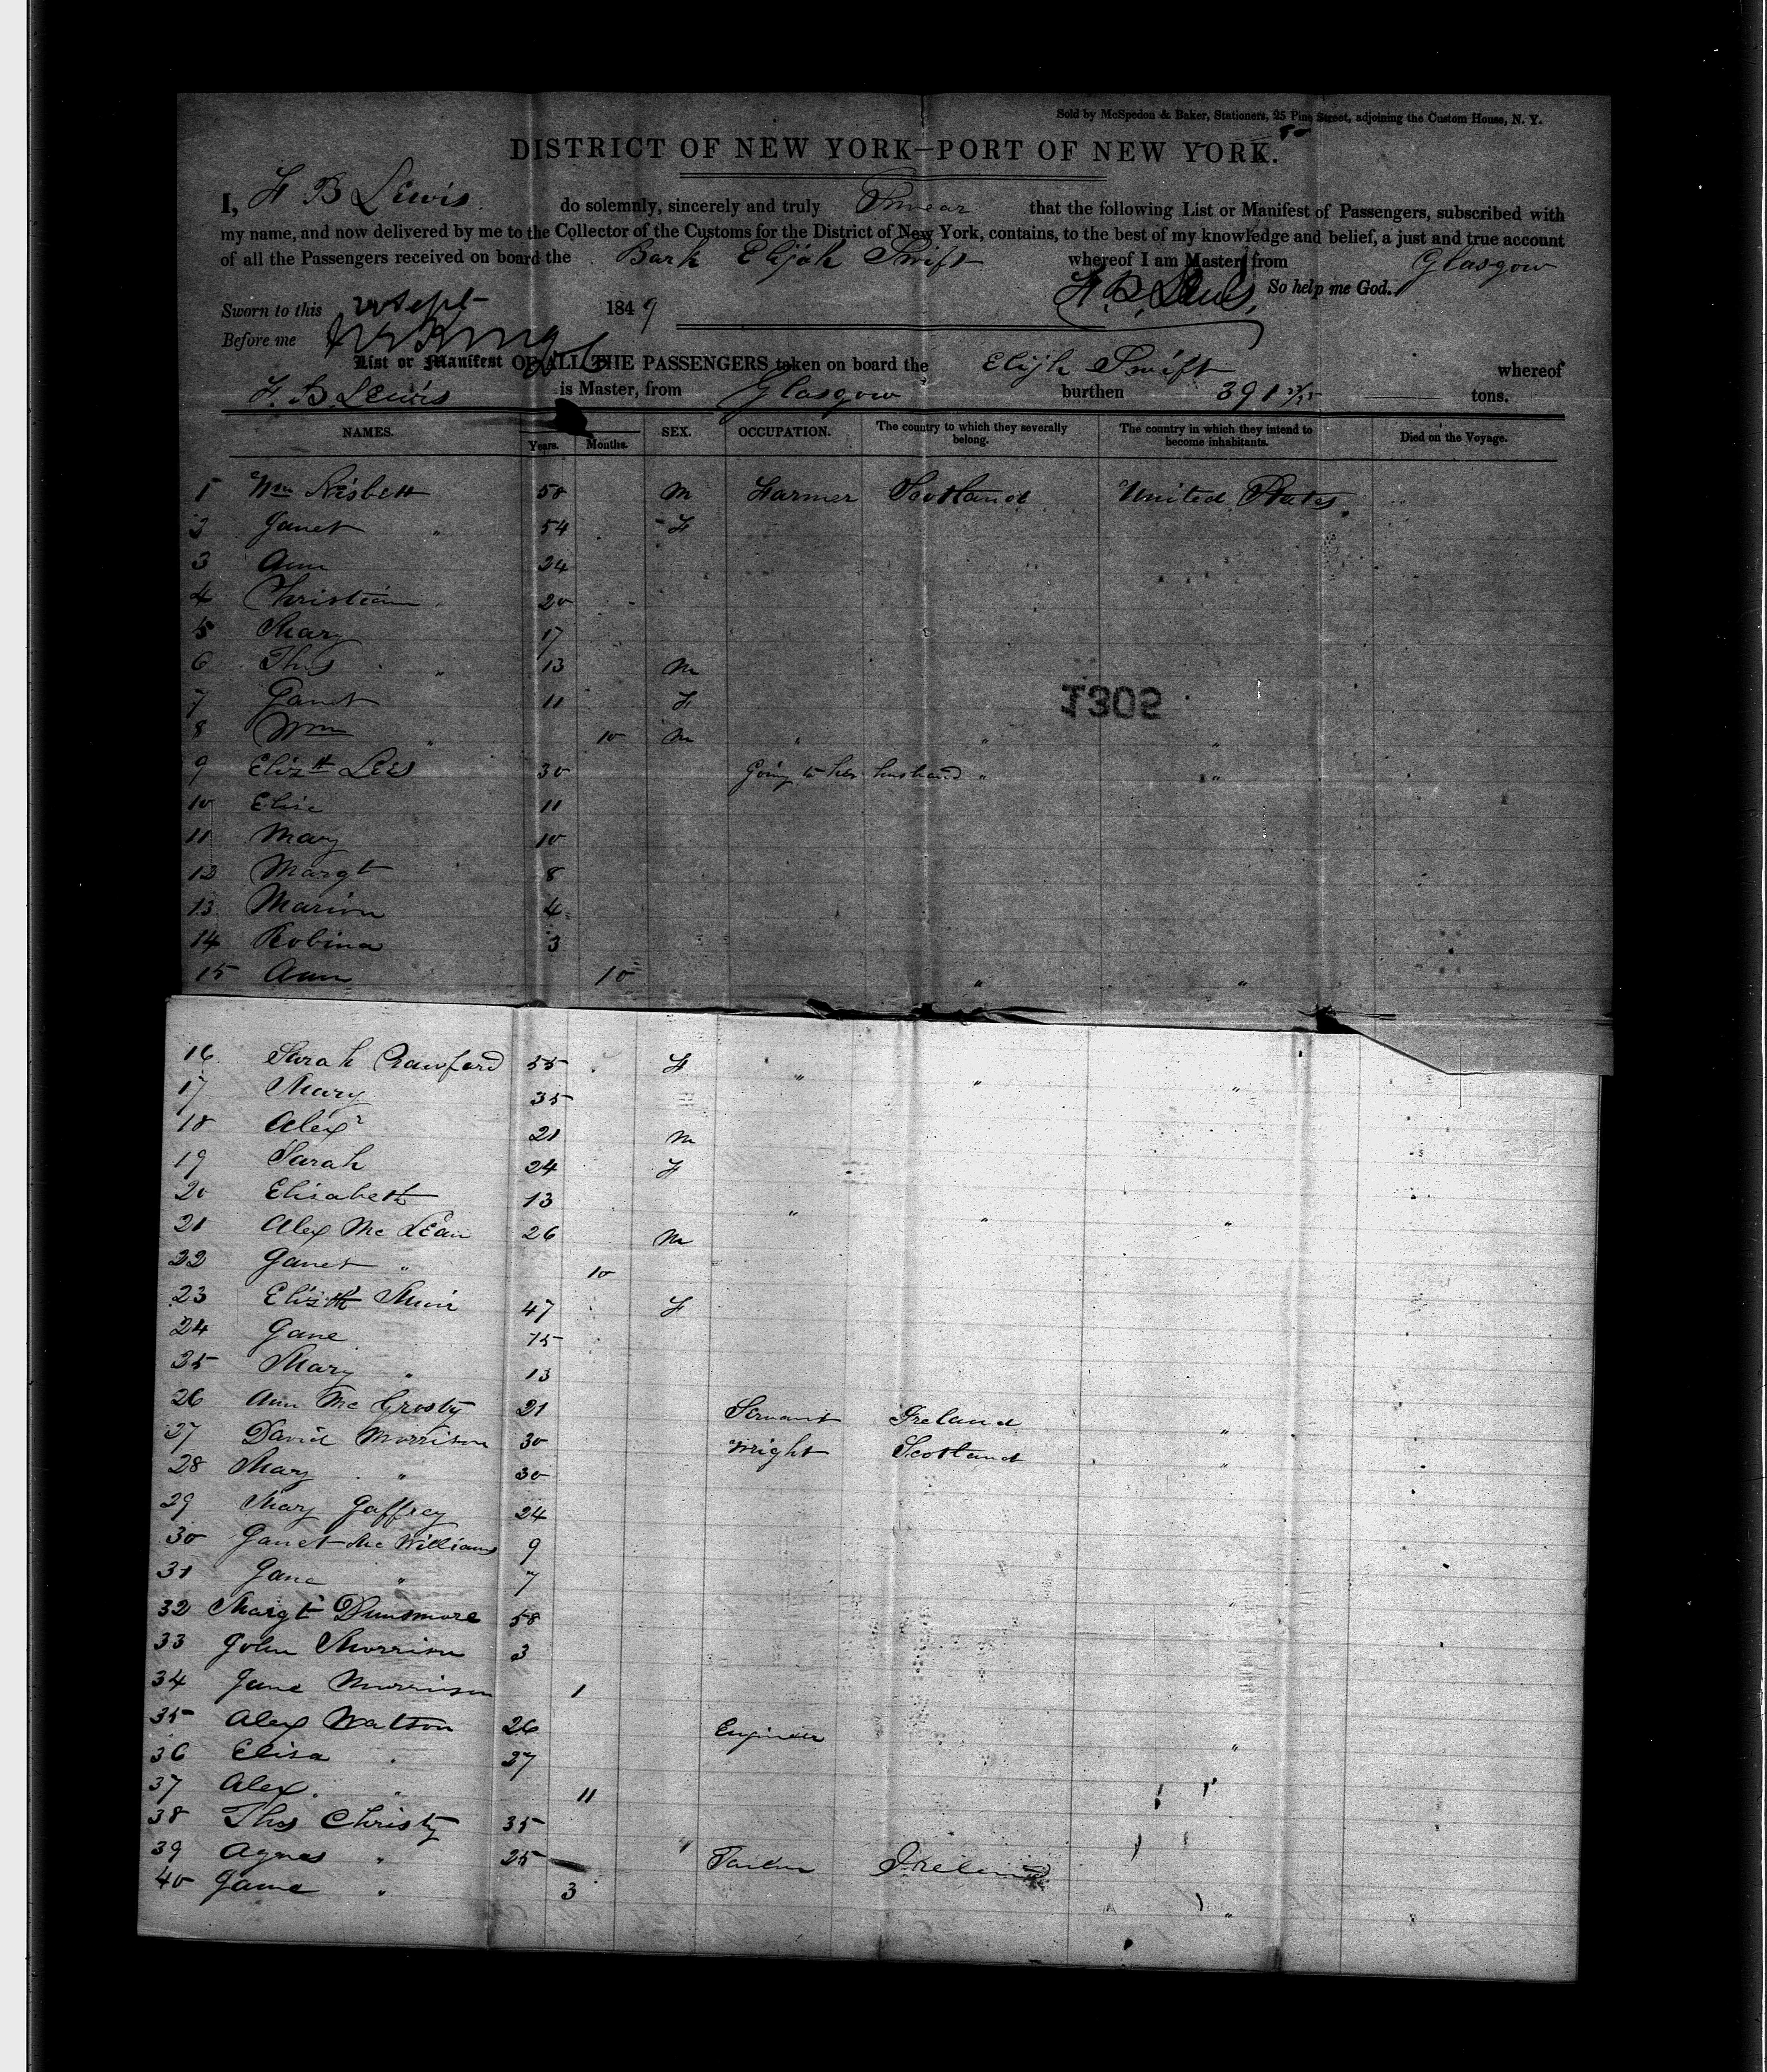 Sold by McSpedon & Baker, Stationers, 25 Pine Street, adjoining the Custom House, N. Y.
DISTRICT OF NEW YORK—PORT OF NEW YORK.
I, F B Lewis do solemnly, sincerely and truly Swear that the following List or Manifest of Passengers, subscribed with
my name, and now delivered by me to the Collector of the Customs for the District of New York, contains, to the best of my knowledge and belief, a just and true account
of all the Passengers received on board the Bark Elijah Swift whereof I am Master, from Glasgow
F. B. Lewis, So help me God.
Sworn to this Sept 1849
Before me
List or Manifest OF ALL THE PASSENGERS taken on board the Elijh Swift whereof
F. B. Lewis is Master, from Glasgow burthen 391 tons.
NAMES. Years. Months. SEX. OCCUPATION. The country to which they severally belong. The country in which they intend to become inhabitants. Died on the Voyage.
1 Wm Nisbett 58 M Farmer Scotland United States
2 Janet " 54 F
3 Ann 24
4 Christiann 20
5 Mary 17
6 Thos " 13 M
7 Janet 11 F
8 Wm " 10 M " " "
9 Elizth Lees 30 Going to her husband " "
10 Elisa 11
11 Mary 10
12 Margt 8
13 Marion 4
14 Robina 3
15 Ann 10 " "
1302
16 Sarah Crawford 55 F " " "
17 Mary 35
18 Alexr 21 M
19 Sarah 24 F
20 Elisabeth 13 " " "
21 Alex Mc Lean 26 M
22 Janet " 10
23 Elizth Muir 47 F
24 Jane 15
25 Mary " 13
26 Ann Mc Grosty 21 Servant Ireland "
27 David Morrison 30 Wright Scotland "
28 Mary " 30
29 Mary Gaffrey 24
30 Janet Mc Williams 9
31 Jane " 7
32 Margt Dunsmore 58 "
33 John Morrison 3
34 Jane Morrison 1
35 Alex Watson 26 Engineer "
36 Elisa " 27
37 Alex. " 11
38 Thos Christy 35
39 Agnes " 25 Ireland
40 Jame " 3 "